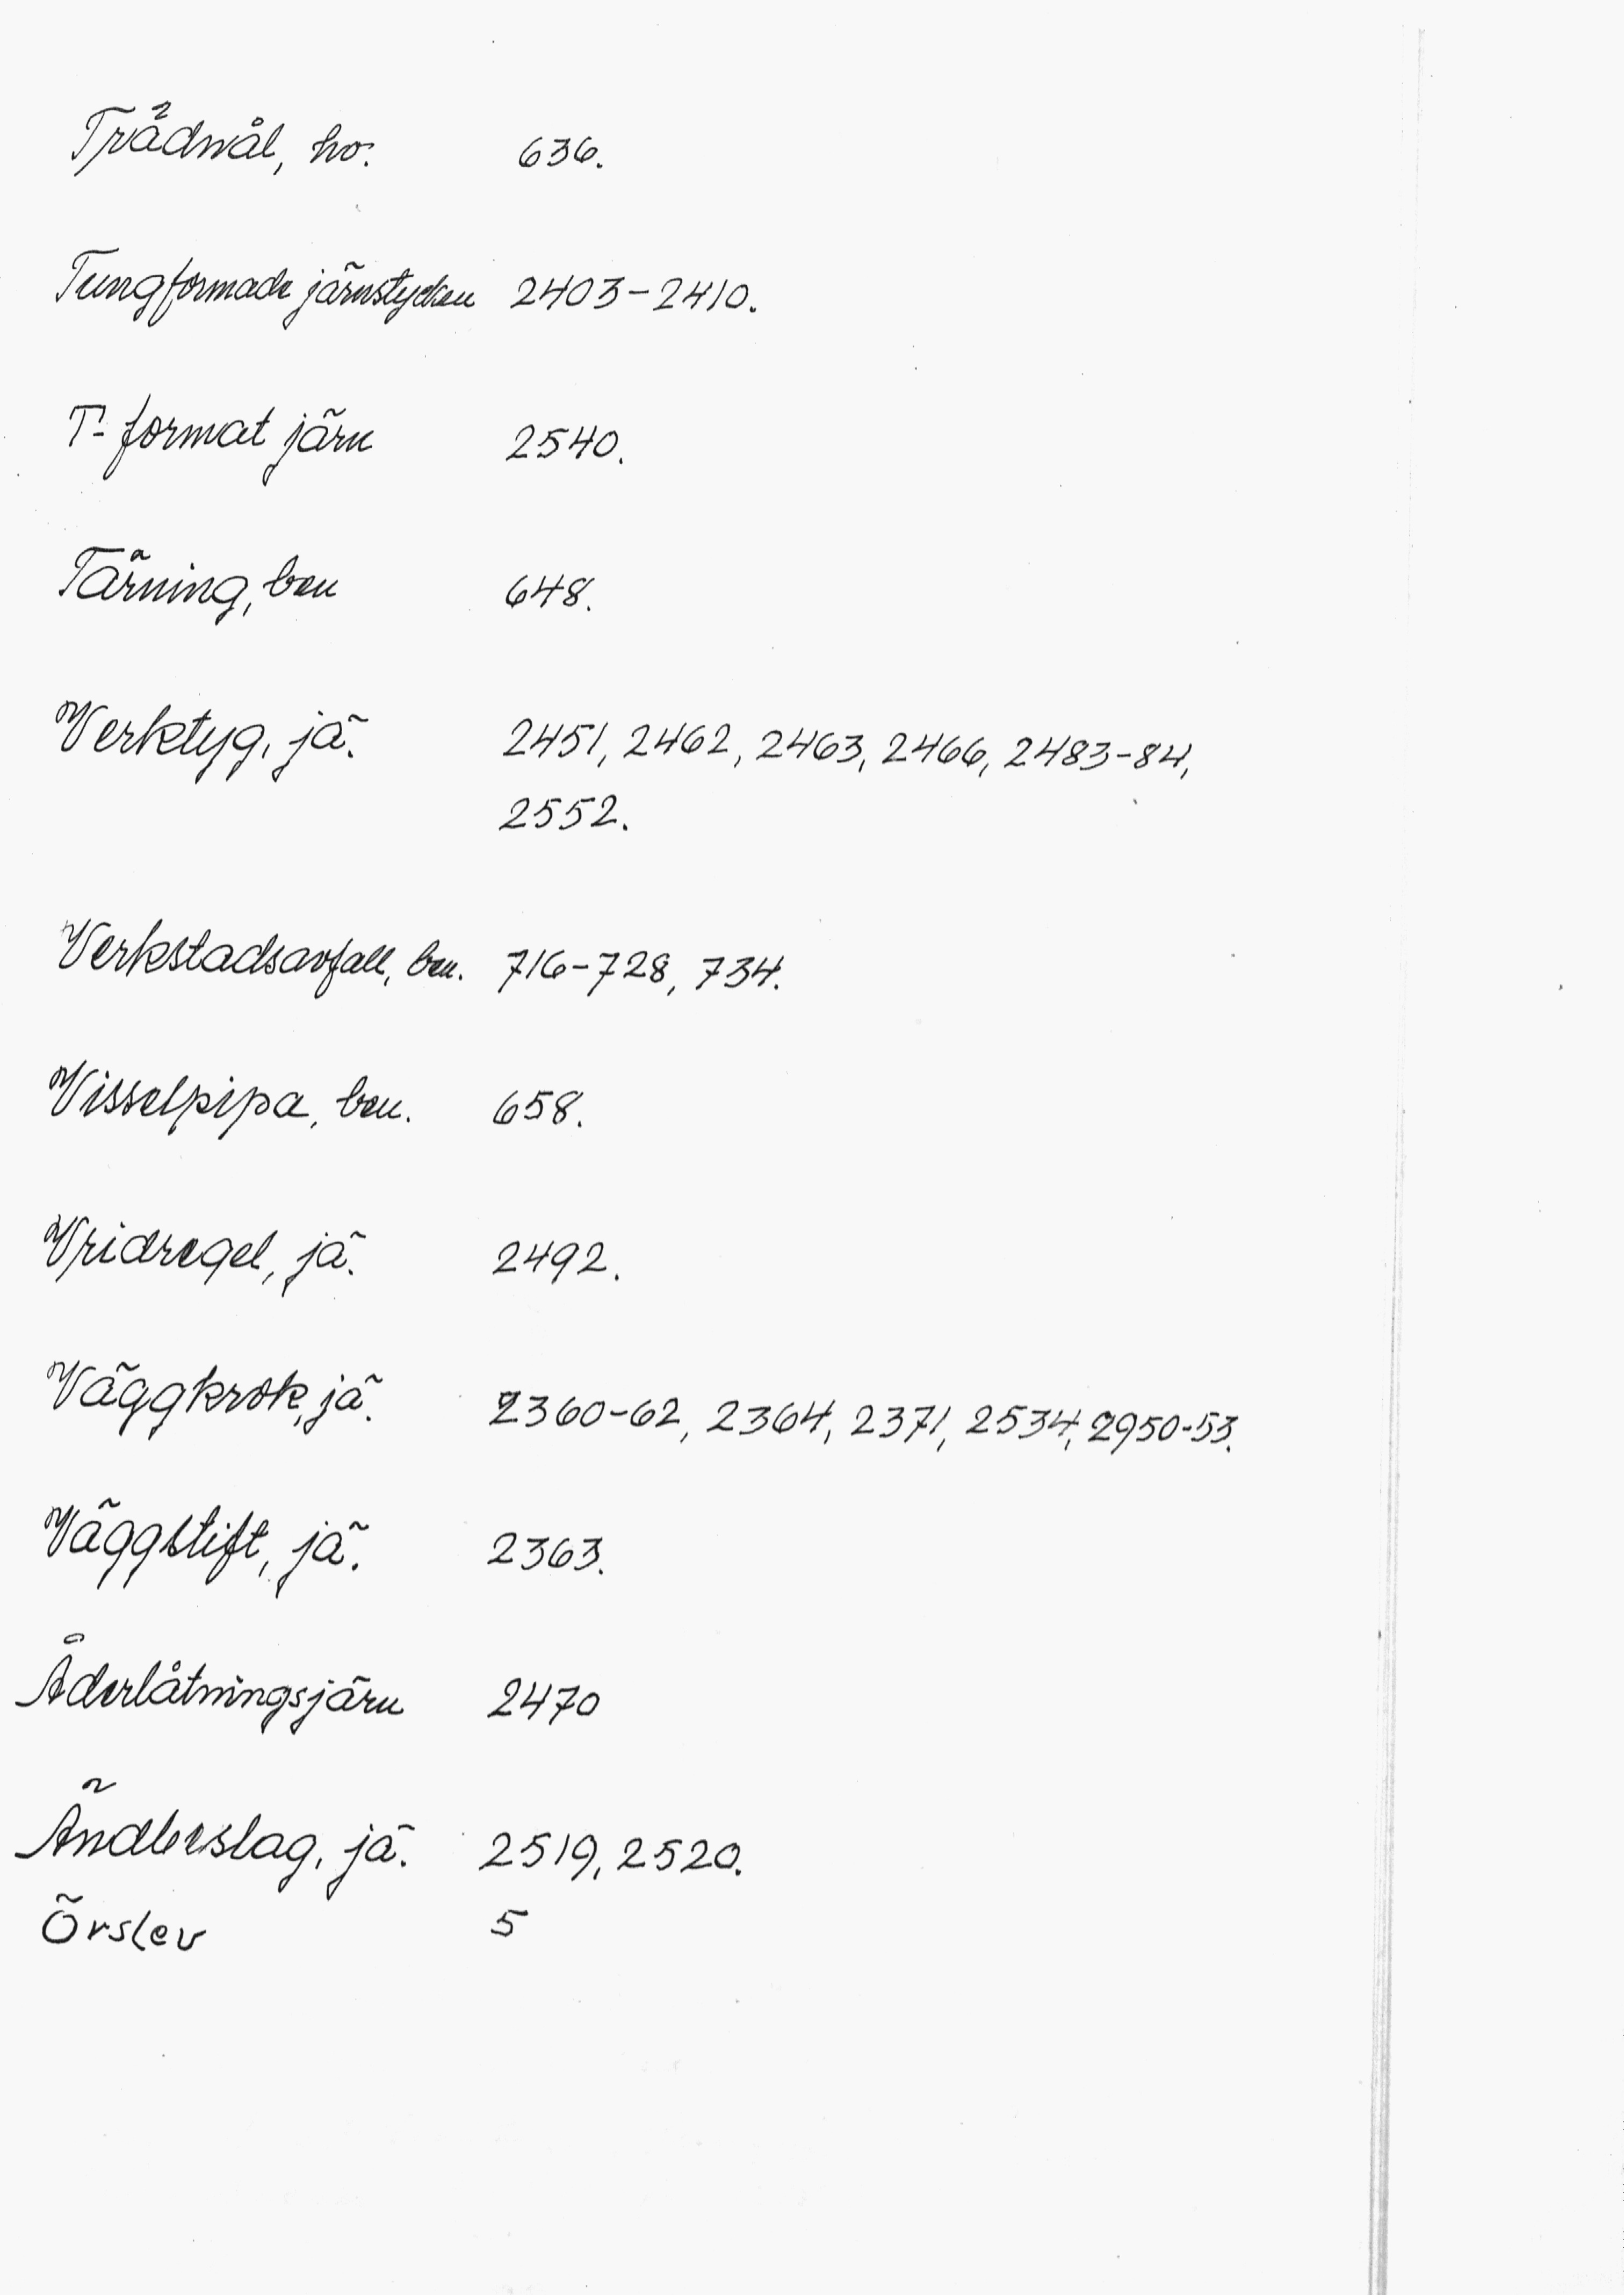 Trådnål, ho. 636.
Tungformade järnstycken 2403-2410.
T-format järn 2540.
Tärning, ben 648.
Verktyg, jä. 2451, 2462, 2463, 2466, 2483-84,
2552.
Verkstadsavfall, ben. 716-728, 734.
Visselpipa, ben. 658.
Vridregel, jä. 2492.
Väggkrok, jä. 2360-62, 2364, 2371, 2534, 2950-53.
Väggstift, jä. 2363.
Åderlåtningsjärn 2470
Ändbeslag, jä. 2519, 2520.
Örslev 5